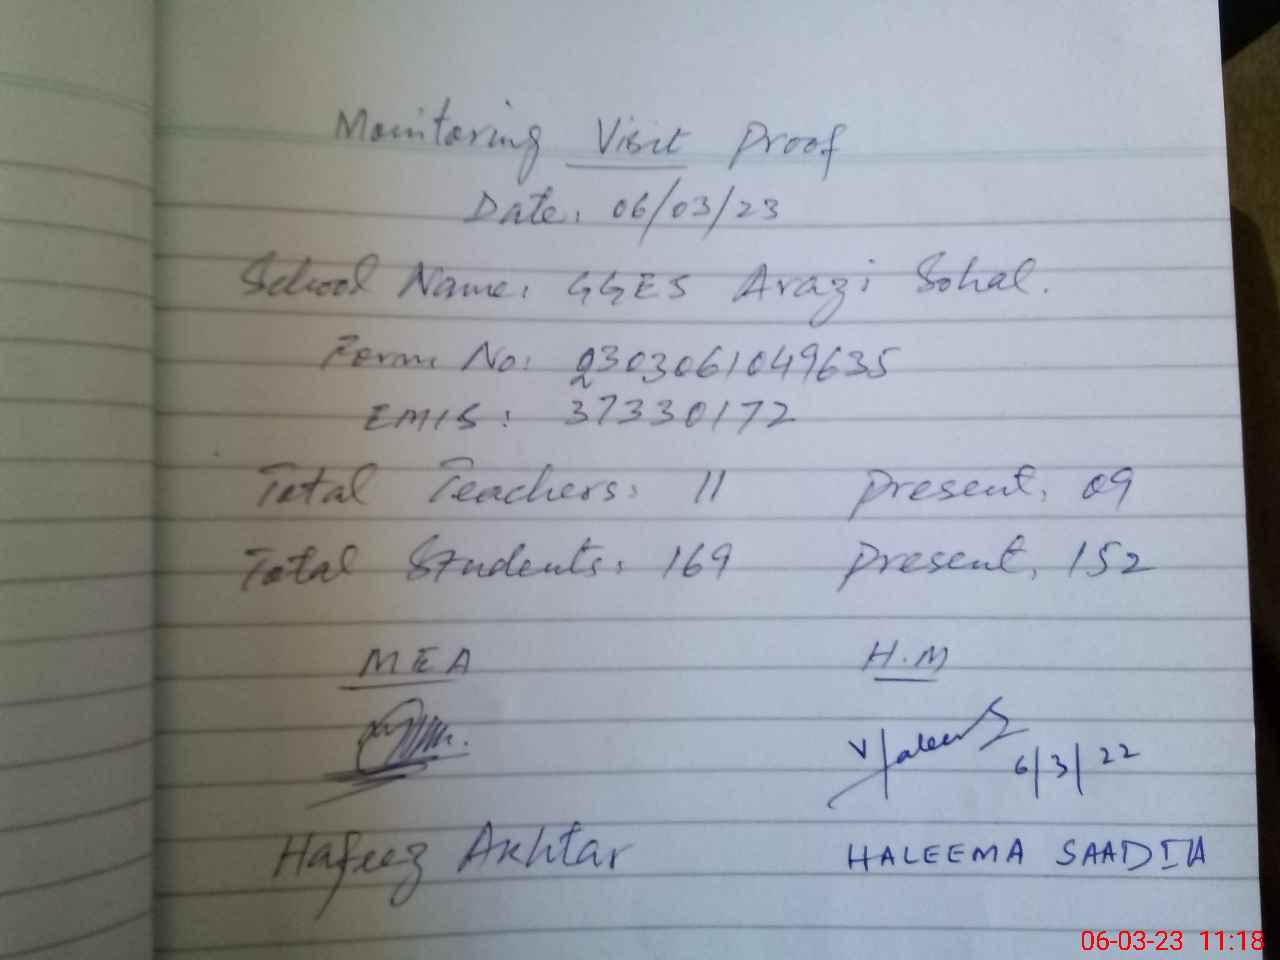 Monitoring Visit Proof
Date: 06/03/23
School Name: GGES Arazi Sohal.
Form No: 2303061049635
EMIS: 37330172
Total Teachers: 11 Present: 09
Total Students: 169 Present: 152
MEA H.M
6/3/22
Hafeez Akhtar HALEEMA SAADIA
06-03-23 11:18